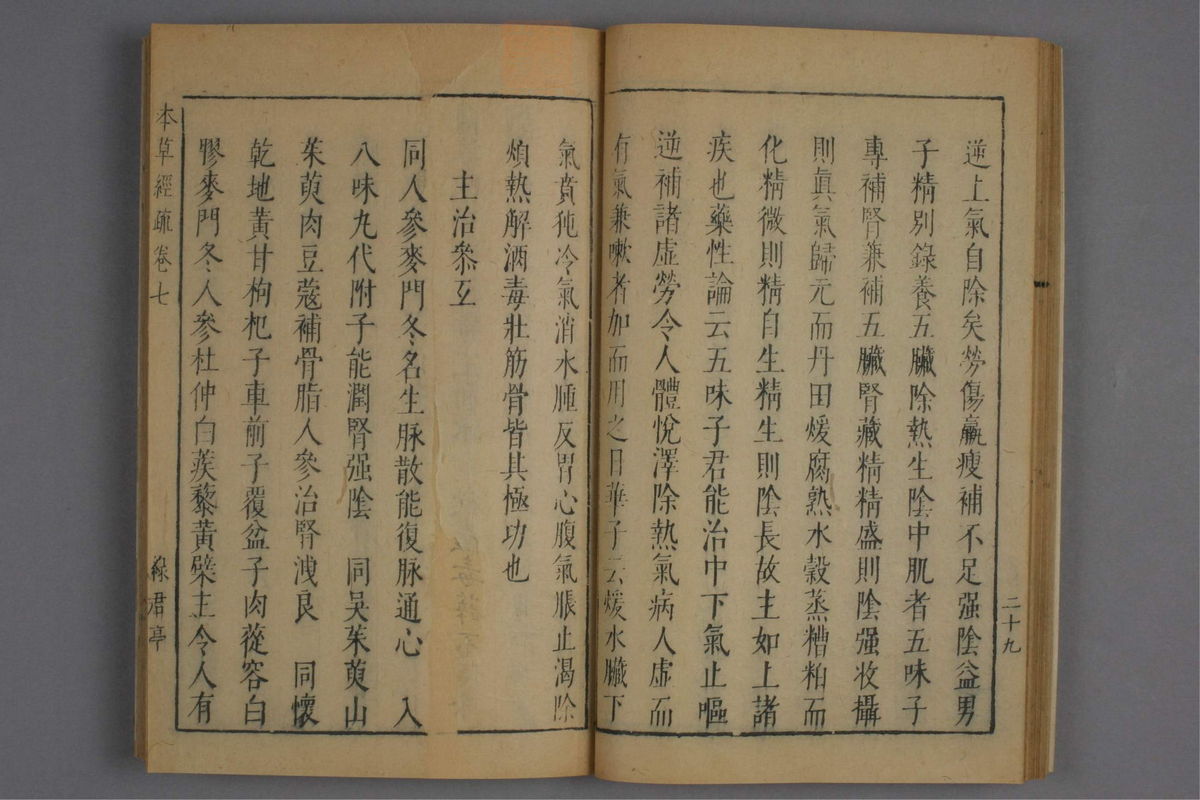 逆上氣自除矣勞傷羸瘦補不足强陰益男
子精別錄養五臟除熱生陰中肌者五味子
專補腎兼補五臟腎藏精精盛則陰强收攝
則眞氣歸元而丹田煖腐熟水穀蒸糟粕而
化精微則精自生精生則陰長故主如上諸
疾也藥性論云五味子君能治中下氣止嘔
逆補諸虛勞令人體悅澤除熱氣病人虛而
有氣兼嗽者加而用之日華子云煖水臟下
二十九
氣賁㹠冷氣消水腫反胃心腹氣脹止渴除
煩熱解酒毒壯筋骨皆其極功也
主治叅互
同人參麥門冬名生脉散能復脉通心　入
八味丸代附子能潤腎强陰　同吳茱萸山
茱萸肉豆蔻補骨脂人參治腎洩良　同懷
乾地黃甘枸杞子車前子覆盆子肉蓯容白
膠麥門冬人參杜仲白蒺藜黃檗主令人有
本草經疏卷七
綠君亭